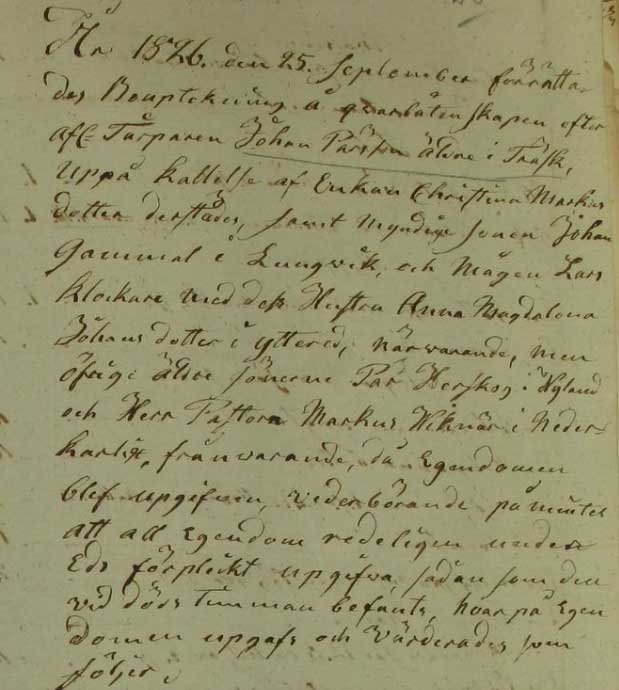 År 1826. den 25. September förrätta-
des Boupteckning å qvarlåtenskapen efter
afl= Torparen Johan Pärsson äldre i Träsk,
uppå kallelse af Enkan Christina Markus
dotter derstädes, samt myndige sonen Johan
Gammal i Lungvik, och Mågen Lars
Klockare med dess Hustru Anna Magdalena
Johans dotter i yttered, närwarande, men
öfrige äldre sönerne Pär Herskog i Nyland
och Herr Pastorn Markus Wiknär i Neder-
karlix, frånvarande, då Egendomen
blef upgifven, vederbörande påmintes
att all Egendom redeligen under
Eds förplickt upgifva, sådan som den
vid döds timman befants, hvarpå Egen
domen upgafs och Värderades som
följer,